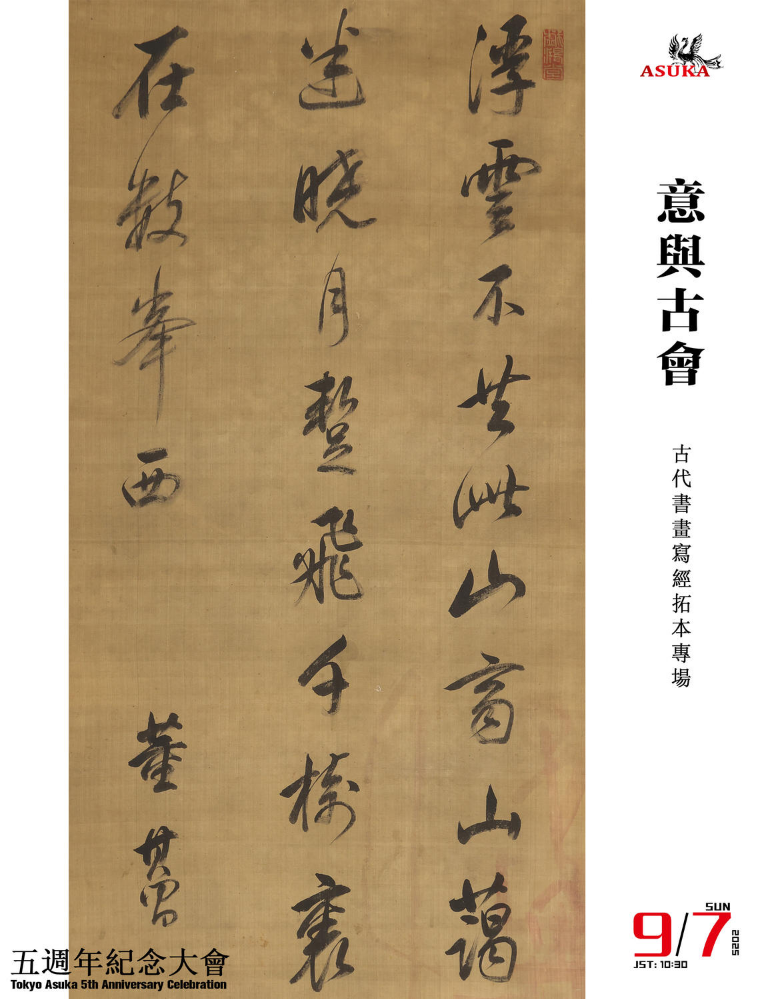 浮雲不共此山齊山藹
迷曉月蹔飛千樹裏
在數峯西
董其昌
ASUKA
意與古會
古代書畫寫經拓本專場
9/7
SUN
2025
JST: 10:30
五週年紀念大會
Tokyo Asuka 5th Anniversary Celebration